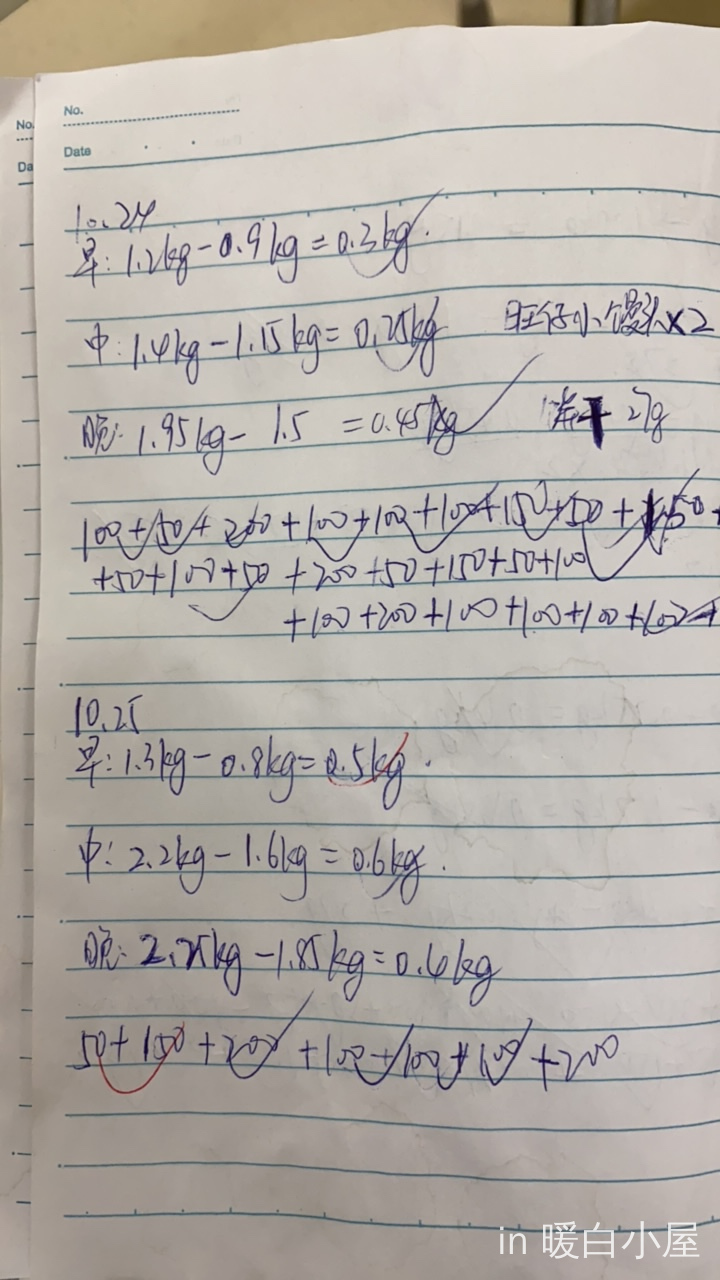 No.
No.
Date
Da
10.24
早: 1.2kg - 0.9kg = 0.3kg.
中: 1.4kg - 1.15kg = 0.25kg 旺仔小馒头×2
晚: 1.95kg - 1.5 = 0.45kg 27g
100+50+200+100+100+100+150+50+50+
+50+100+50+200+50+150+50+100
+100+200+100+100+100+100+
10.25
早: 1.3kg - 0.8kg = 0.5kg.
中: 2.2kg - 1.6kg = 0.6kg.
晚: 2.25kg - 1.85kg = 0.4kg
50+150+200+100+100+100+200
in 暖白小屋